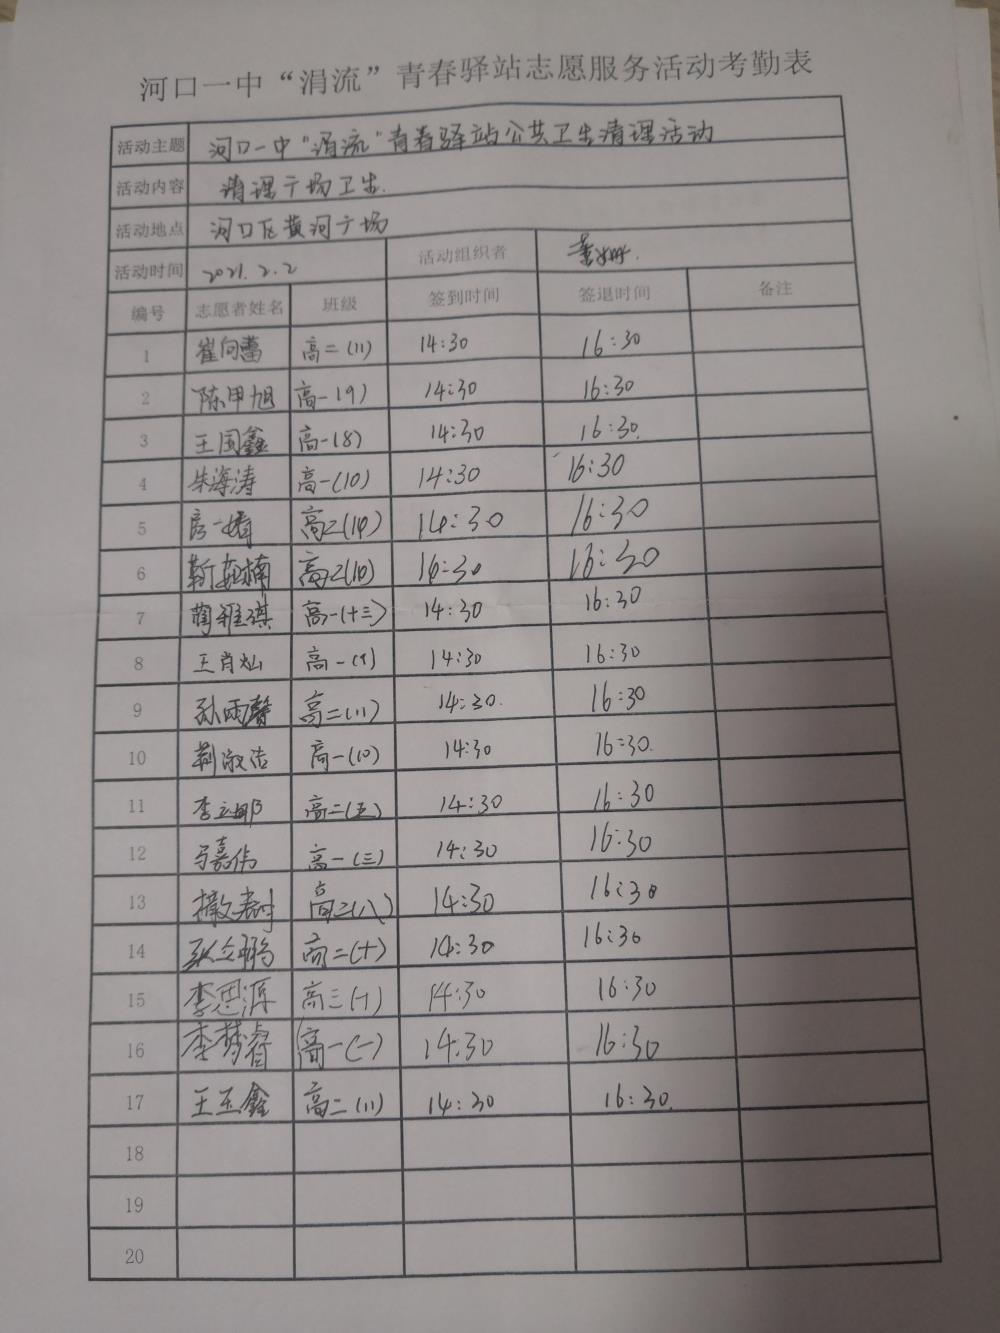 河口一中“涓流”青春驿站志愿服务活动考勤表
活动主题 河口一中“涓流”青春驿站公共卫生清理活动
活动内容 清理广场卫生.
活动地点 河口区黄河广场
活动时间 2021.2.2 活动组织者
编号 志愿者姓名 班级 签到时间 签退时间 备注
1 崔向蕾 高二(11) 14:30 16:30
2 陈甲旭 高一(9) 14:30 16:30
3 王国鑫 高一(8) 14:30 16:30.
4 朱海涛 高一(10) 14:30 16:30
5 高二(14) 14:30 16:30
6 高二(10) 14:30 16:30
7 蔺雅琪 高一(十三) 14:30 16:30
8 王肖灿 高一(1) 14:30 16:30
9 孙雨馨 高二(11) 14:30. 16:30
10 高一(10) 14:30 16:30.
11 高二(五) 14:30 16:30
12 马嘉伟 高一(三) 14:30 16:30
13 高二(八) 14:30 16:30
14 高二(十) 14:30 16:30
15 李思源 高三(十) 14:30 16:30
16 李梦睿 高一(一) 14:30 16:30
17 王玉鑫 高二(11) 14:30 16:30.
18
19
20